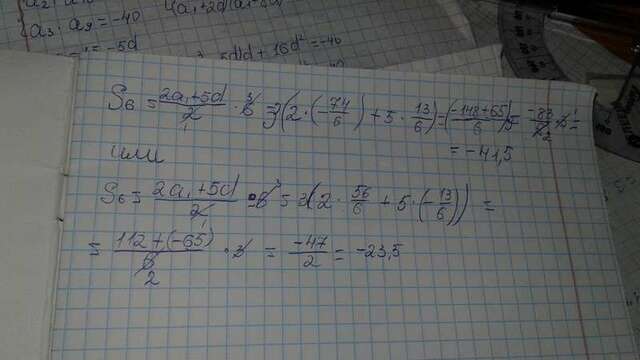 a₃· a₉ = -40
= -5d
5d)d + 16d² = -40
S₆ = (2a₁+5d)/2 · 6 = 3(2·(-74/6) + 5·13/6) = ((-148+65)/6)·3 = -83/2 =
= -41,5
или
S₆ = (2a₁+5d)/2 · 6 = 3(2·56/6 + 5·(-13/6)) =
= (112+(-65))/6 · 3 = -47/2 = -23,5